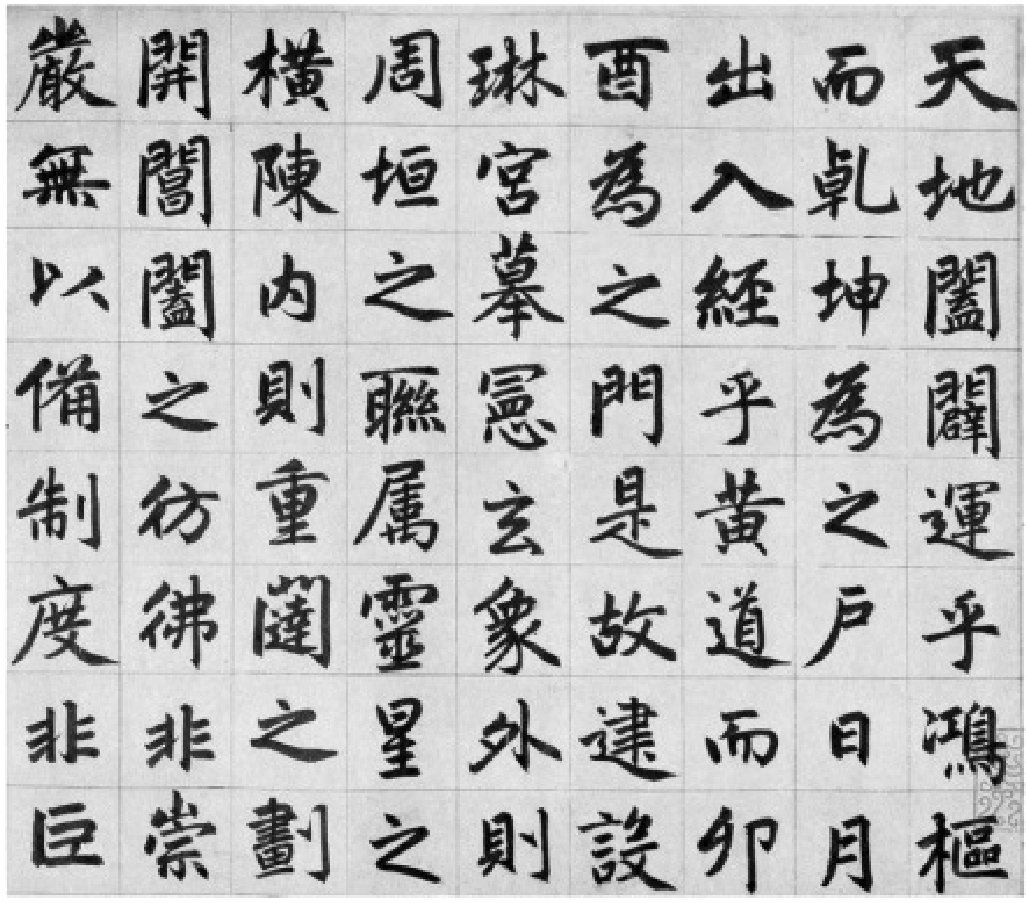 天地闔闢運乎鴻樞
而乹坤為之户日月
出入經乎黄道而卯
酉為之門是故建設
琳宮摹憲玄象外則
周垣之聯属靈星之
橫陳内則重闥之劃
開閶闔之彷彿非崇
嚴無以備制度非巨